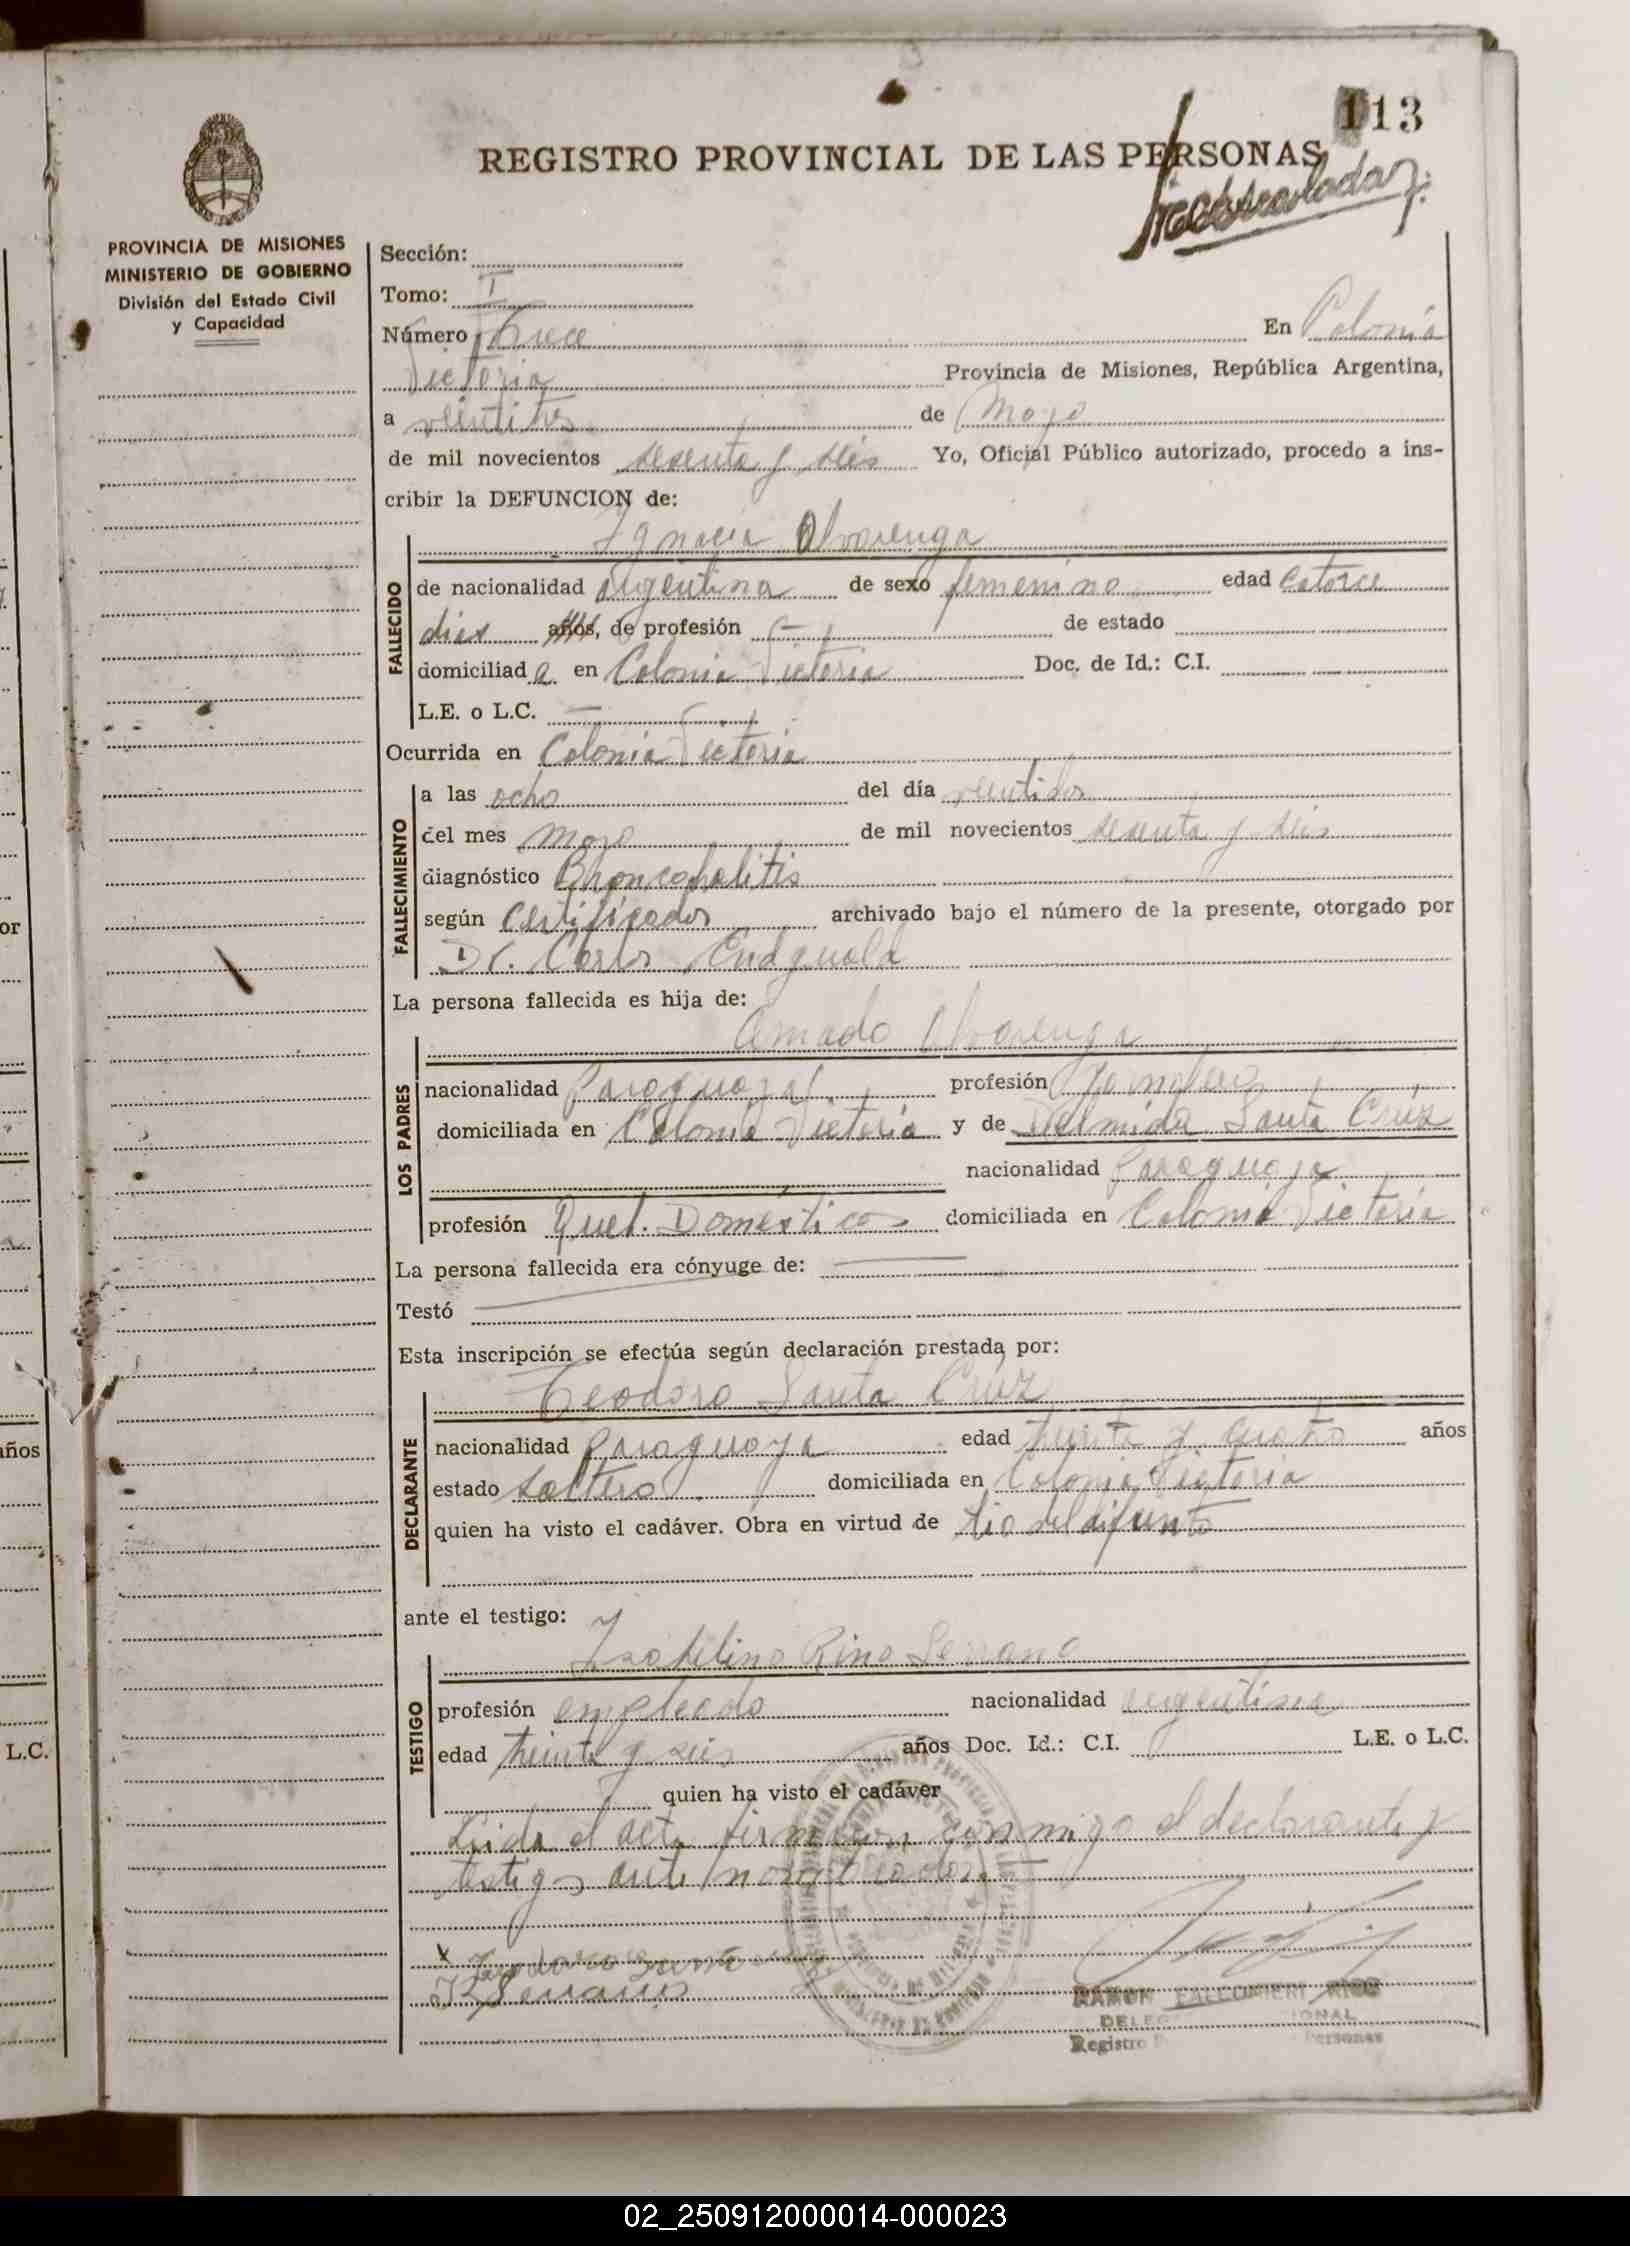 113
REGISTRO PROVINCIAL DE LAS PERSONAS
PROVINCIA DE MISIONES
MINISTERIO DE GOBIERNO
División del Estado Civil
y Capacidad
Sección:
Tomo: I
Número Trece En Colonia
Victoria Provincia de Misiones, República Argentina,
a veintitres de Mayo
de mil novecientos sesenta y seis Yo, Oficial Público autorizado, procedo a ins-
cribir la DEFUNCION de:
Ignacia Alvarenga
FALLECIDO
de nacionalidad argentina de sexo femenino edad Catorce
dias años, de profesión — de estado
domiciliad a en Colonia Victoria Doc. de Id.: C.I.
L.E. o L.C. —
Ocurrida en Colonia Victoria
FALLECIMIENTO
a las ocho del día veintidos
del mes Mayo de mil novecientos sesenta y seis
diagnóstico
según Certificados archivado bajo el número de la presente, otorgado por
Dr. Carlos
La persona fallecida es hija de:
Amado Alvarenga
LOS PADRES
nacionalidad Paraguaya profesión Jornalero
domiciliada en Colonia Victoria y de Delmida Santa Cruz
nacionalidad Paraguaya
profesión Quel. Domésticos domiciliada en Colonia Victoria
La persona fallecida era cónyuge de: —
Testó —
Esta inscripción se efectúa según declaración prestada por:
Teodoro Santa Cruz
DECLARANTE
nacionalidad Paraguaya edad treinta y cuatro años
estado soltero domiciliada en Colonia Victoria
quien ha visto el cadáver. Obra en virtud de tio del difunto
ante el testigo:
Rino Serrano
TESTIGO
profesión empleado nacionalidad argentina
edad treinta y seis años Doc. Id.: C.I. L.E. o L.C.
quien ha visto el cadáver
Leida el acta firman conmigo el declarante y
testigo ante
Teodoro Santa Cruz
Serrano
RAMON FALCONIERI RICO
Registro
Personas
or
años
L.C.
02_250912000014-000023